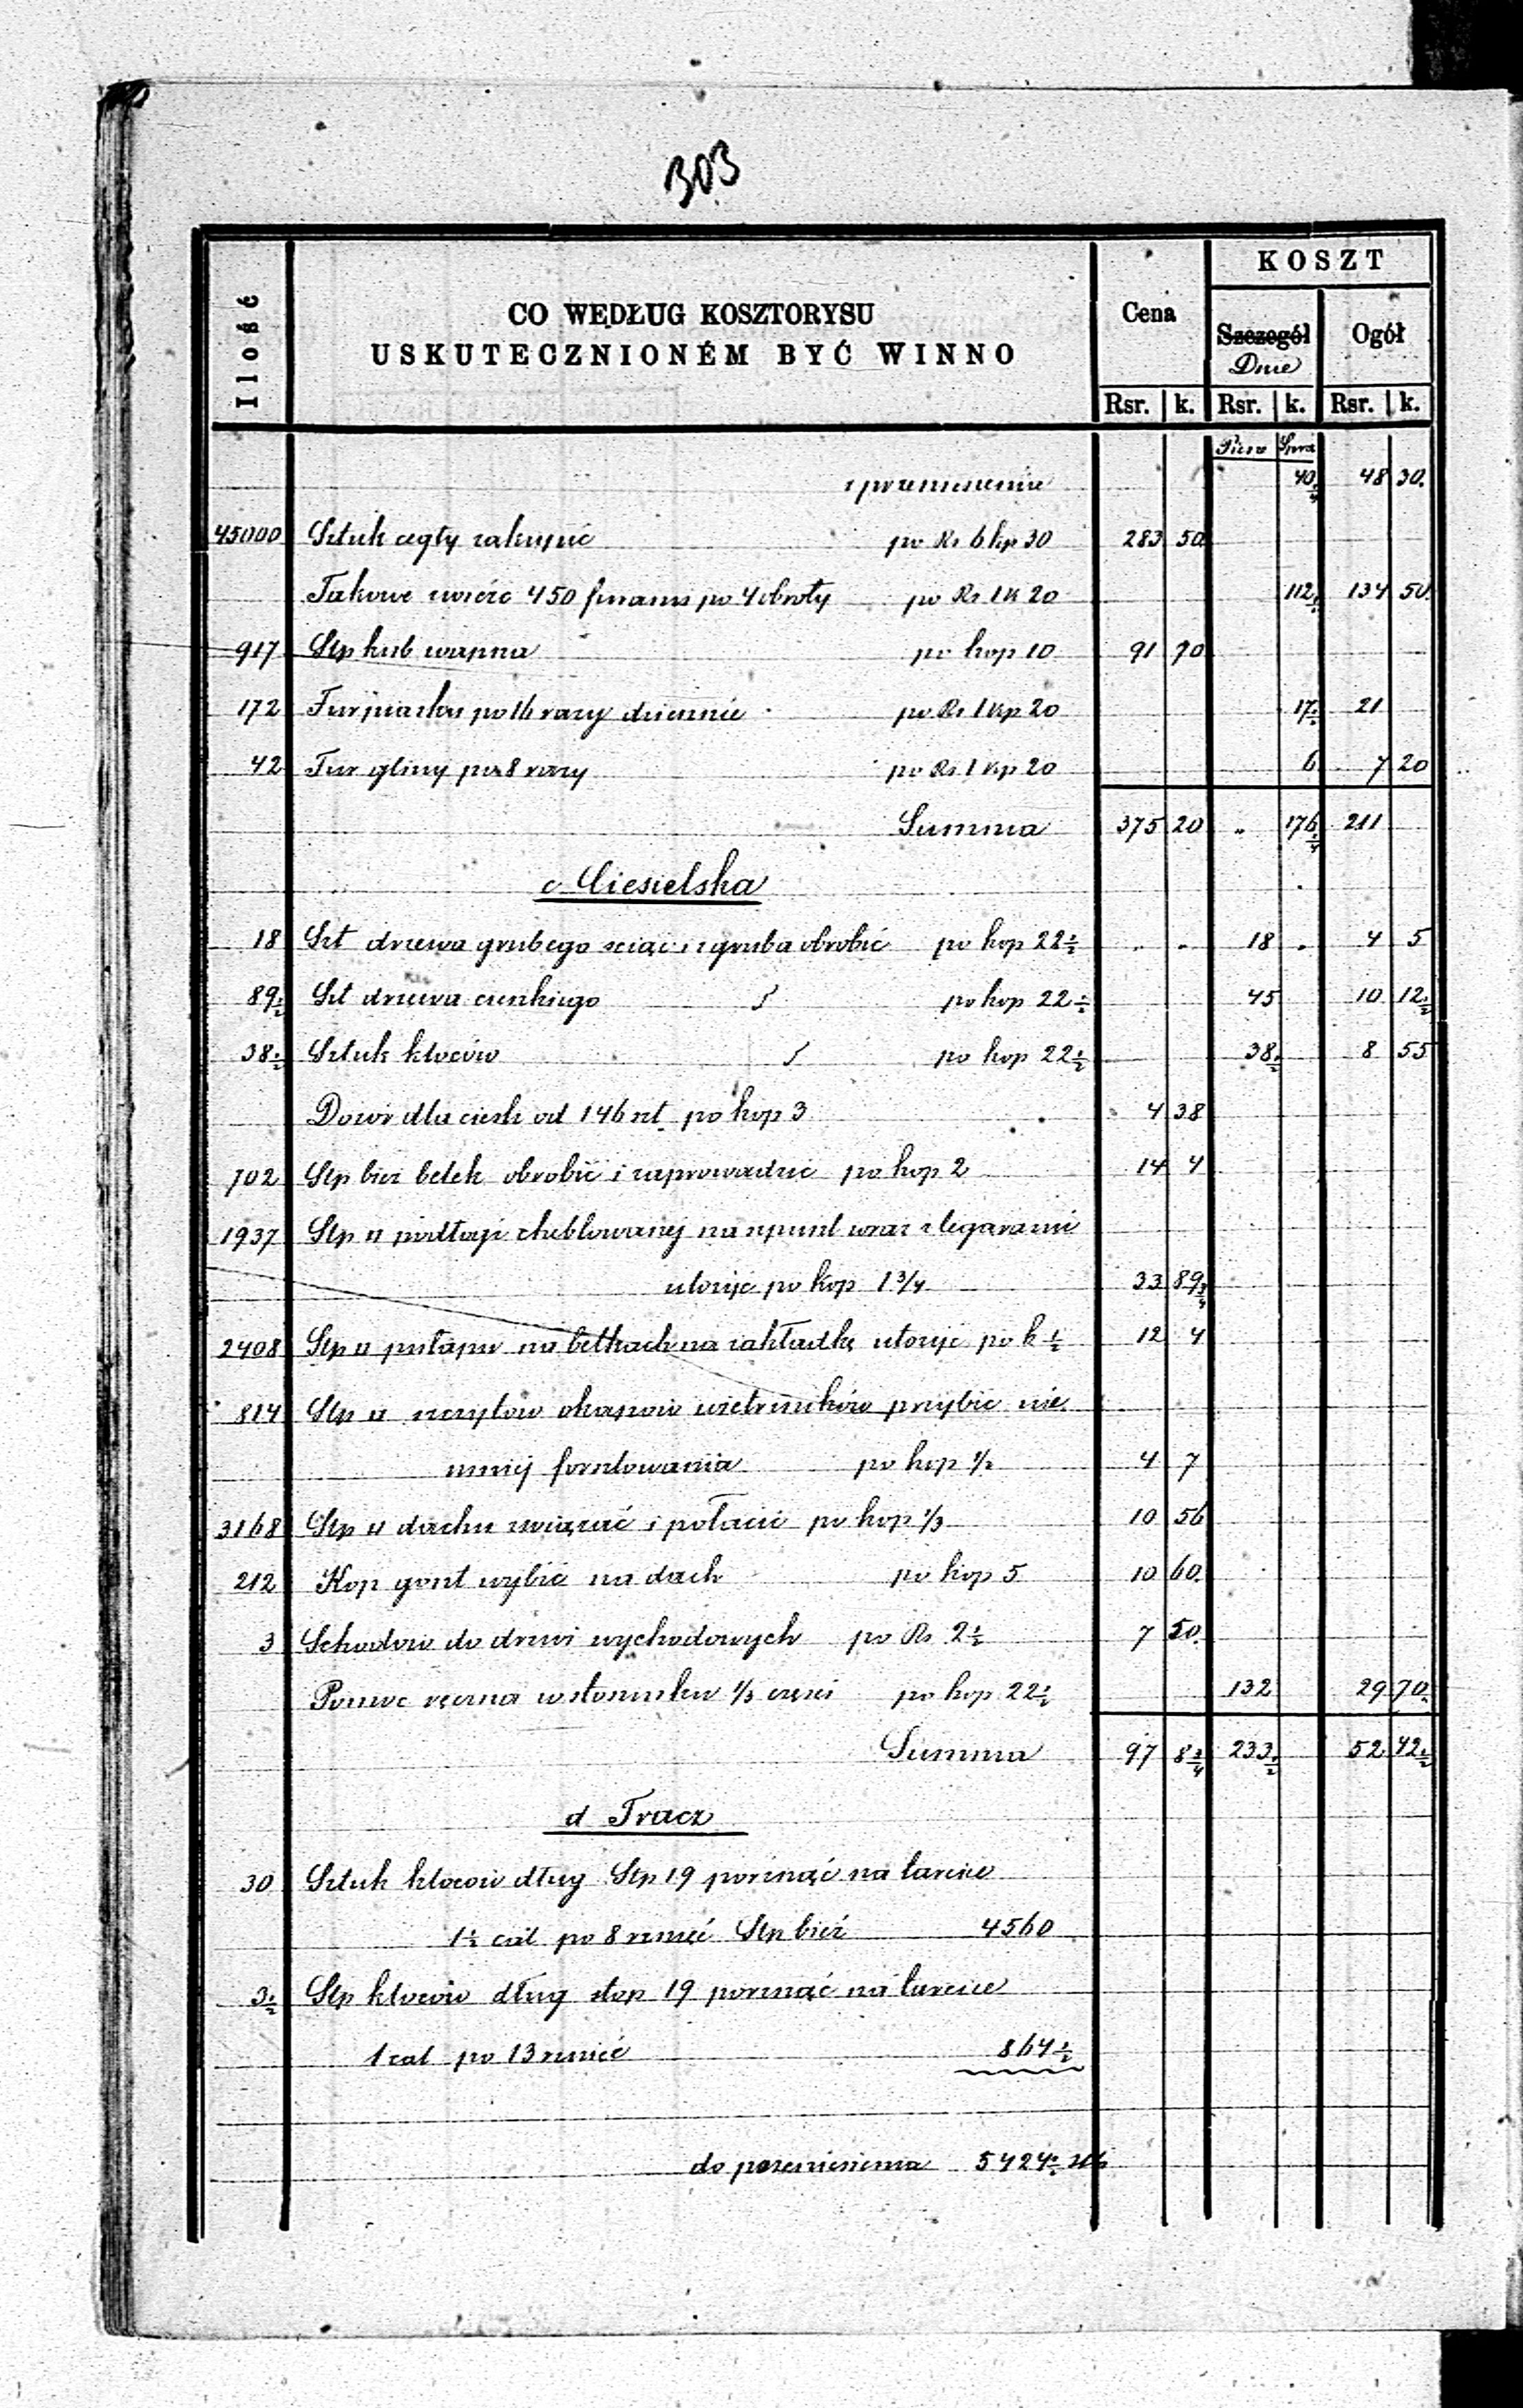 303
Ilość
CO WEDŁUG KOSZTORYSU
USKUTECZNIONÉM BYĆ WINNO
Cena
KOSZT
Szczegół
Dnie
Ogół
Rsr. k. Rsr. k. Rsr. k.
z przeniesienia 40 48 30
45000 Sztuk cegły zakupić po Rs 6 kp 30 283 50
Takowe zwieźć 450 furami po 4 obroty po Rs 1 k 20 112 134 50
917 Stp kub wapna po kop 10 91 70
172 Fur piasku po 16 razy dziennie po Rs 1 kp 20 17 21
42 Fur gliny po 8 razy po Rs 1 kp 20 6 7 20
Summa 375 20 „ 176 211
c Ciesielska
18 Szt drzewa grubego sciąć i zgruba obrobić po kop 22½ 18 4 5
89½ Szt drzewa cienkiego po kop 22½ 45 10 12½
38½ Sztuk kloców po kop 22½ 38½ 8 55
Dozór dla od 146 szt po kop 3 4 38
702 Stp bież belek obrobić i zaprowadzić po kop 2 14 4
1937 Stp □ podłogi cheblowanej na szpunt wraz z legarami
ułożyć po kop 1 3/4 33 89¾
2408 Stp □ pułapu na belkach na zakładkę ułożyć po k ½ 12 4
814 Stp □ szczytów okapów wietrzników przybić nie
mniej forsztowania po kop ½ 4 7
3168 Stp □ dachu związać i połacić po kop ⅓ 10 56
212 Kop gont wybić na dach po kop 5 10 60
3 Schodów do drzwi wychodowych po Rs 2½ 7 50
Pomoc ręczna w stosunku ⅓ części po kop 22½ 132 29 70
Summa 97 8¾ 233½ 52 42½
d Tracz
30 Sztuk kloców dług Stp 19 porznąć na tarcice
1½ cal po 8 rznięć Stp bież 4560
3½ Stp kloców dług stop 19 porznąć na tarcice
1 cal po 13 rznięć 864½
do przeniesienia 5424½